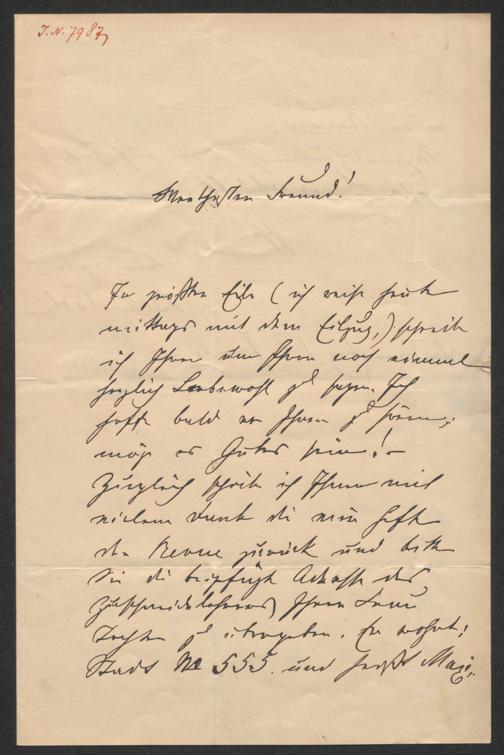 I.N. 7987
Werthester Freund!
In größter Eile (ich reise heute
mittags mit dem Eilzug,) schreibe
ich Ihnen um Ihnen noch einmal
herzlich Lebewohl zu sagen. Ich
hoffe bald von Ihnen zu hören;
möge es Gutes sein! –
Zugleich schicke ich Ihnen mit
vielem Dank die neun Hefte
der Revue zurück und bitte
Sie die beigefügte Adresse des
Zuschneidelehrers Ihrer Frau
Tochter zu übergeben. Er wohnt:
Stadt No 555. und heißt